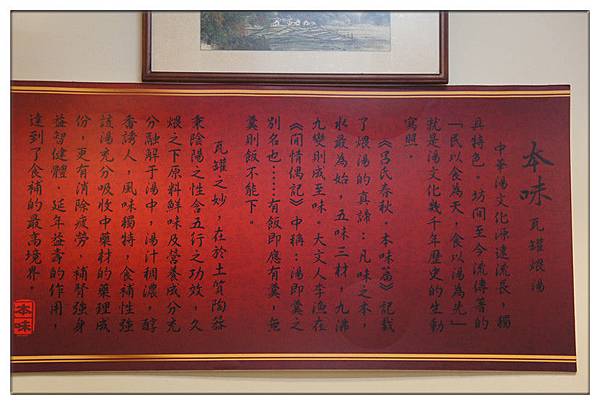 本味 瓦罐煨湯
中華湯文化源遠流長，獨
具特色。坊間至今流傳著的
「民以食為天，食以湯為先」
就是湯文化幾千年歷史的生動
寫照。
《呂氏春秋．本味篇》記載
了煨湯的真諦：凡味之本，
水最為始，五味三材，九沸
九變則成至味。大文人李漁在
《閒情偶記》中稱：湯即羹之
別名也……有飯即應有羹，無
羹則飯不能下。
瓦罐之妙，在於土質陶器
秉陰陽之性含五行之功效，久
煨之下原料鮮味及營養成分充
分融解于湯中，湯汁稠濃，醇
香誘人，風味獨特，食補性強
該湯充分吸收中藥材的藥理成
份，更有消除疲勞，補腎強身
益智健體．延年益壽的作用，
達到了食補的最高境界。
本味